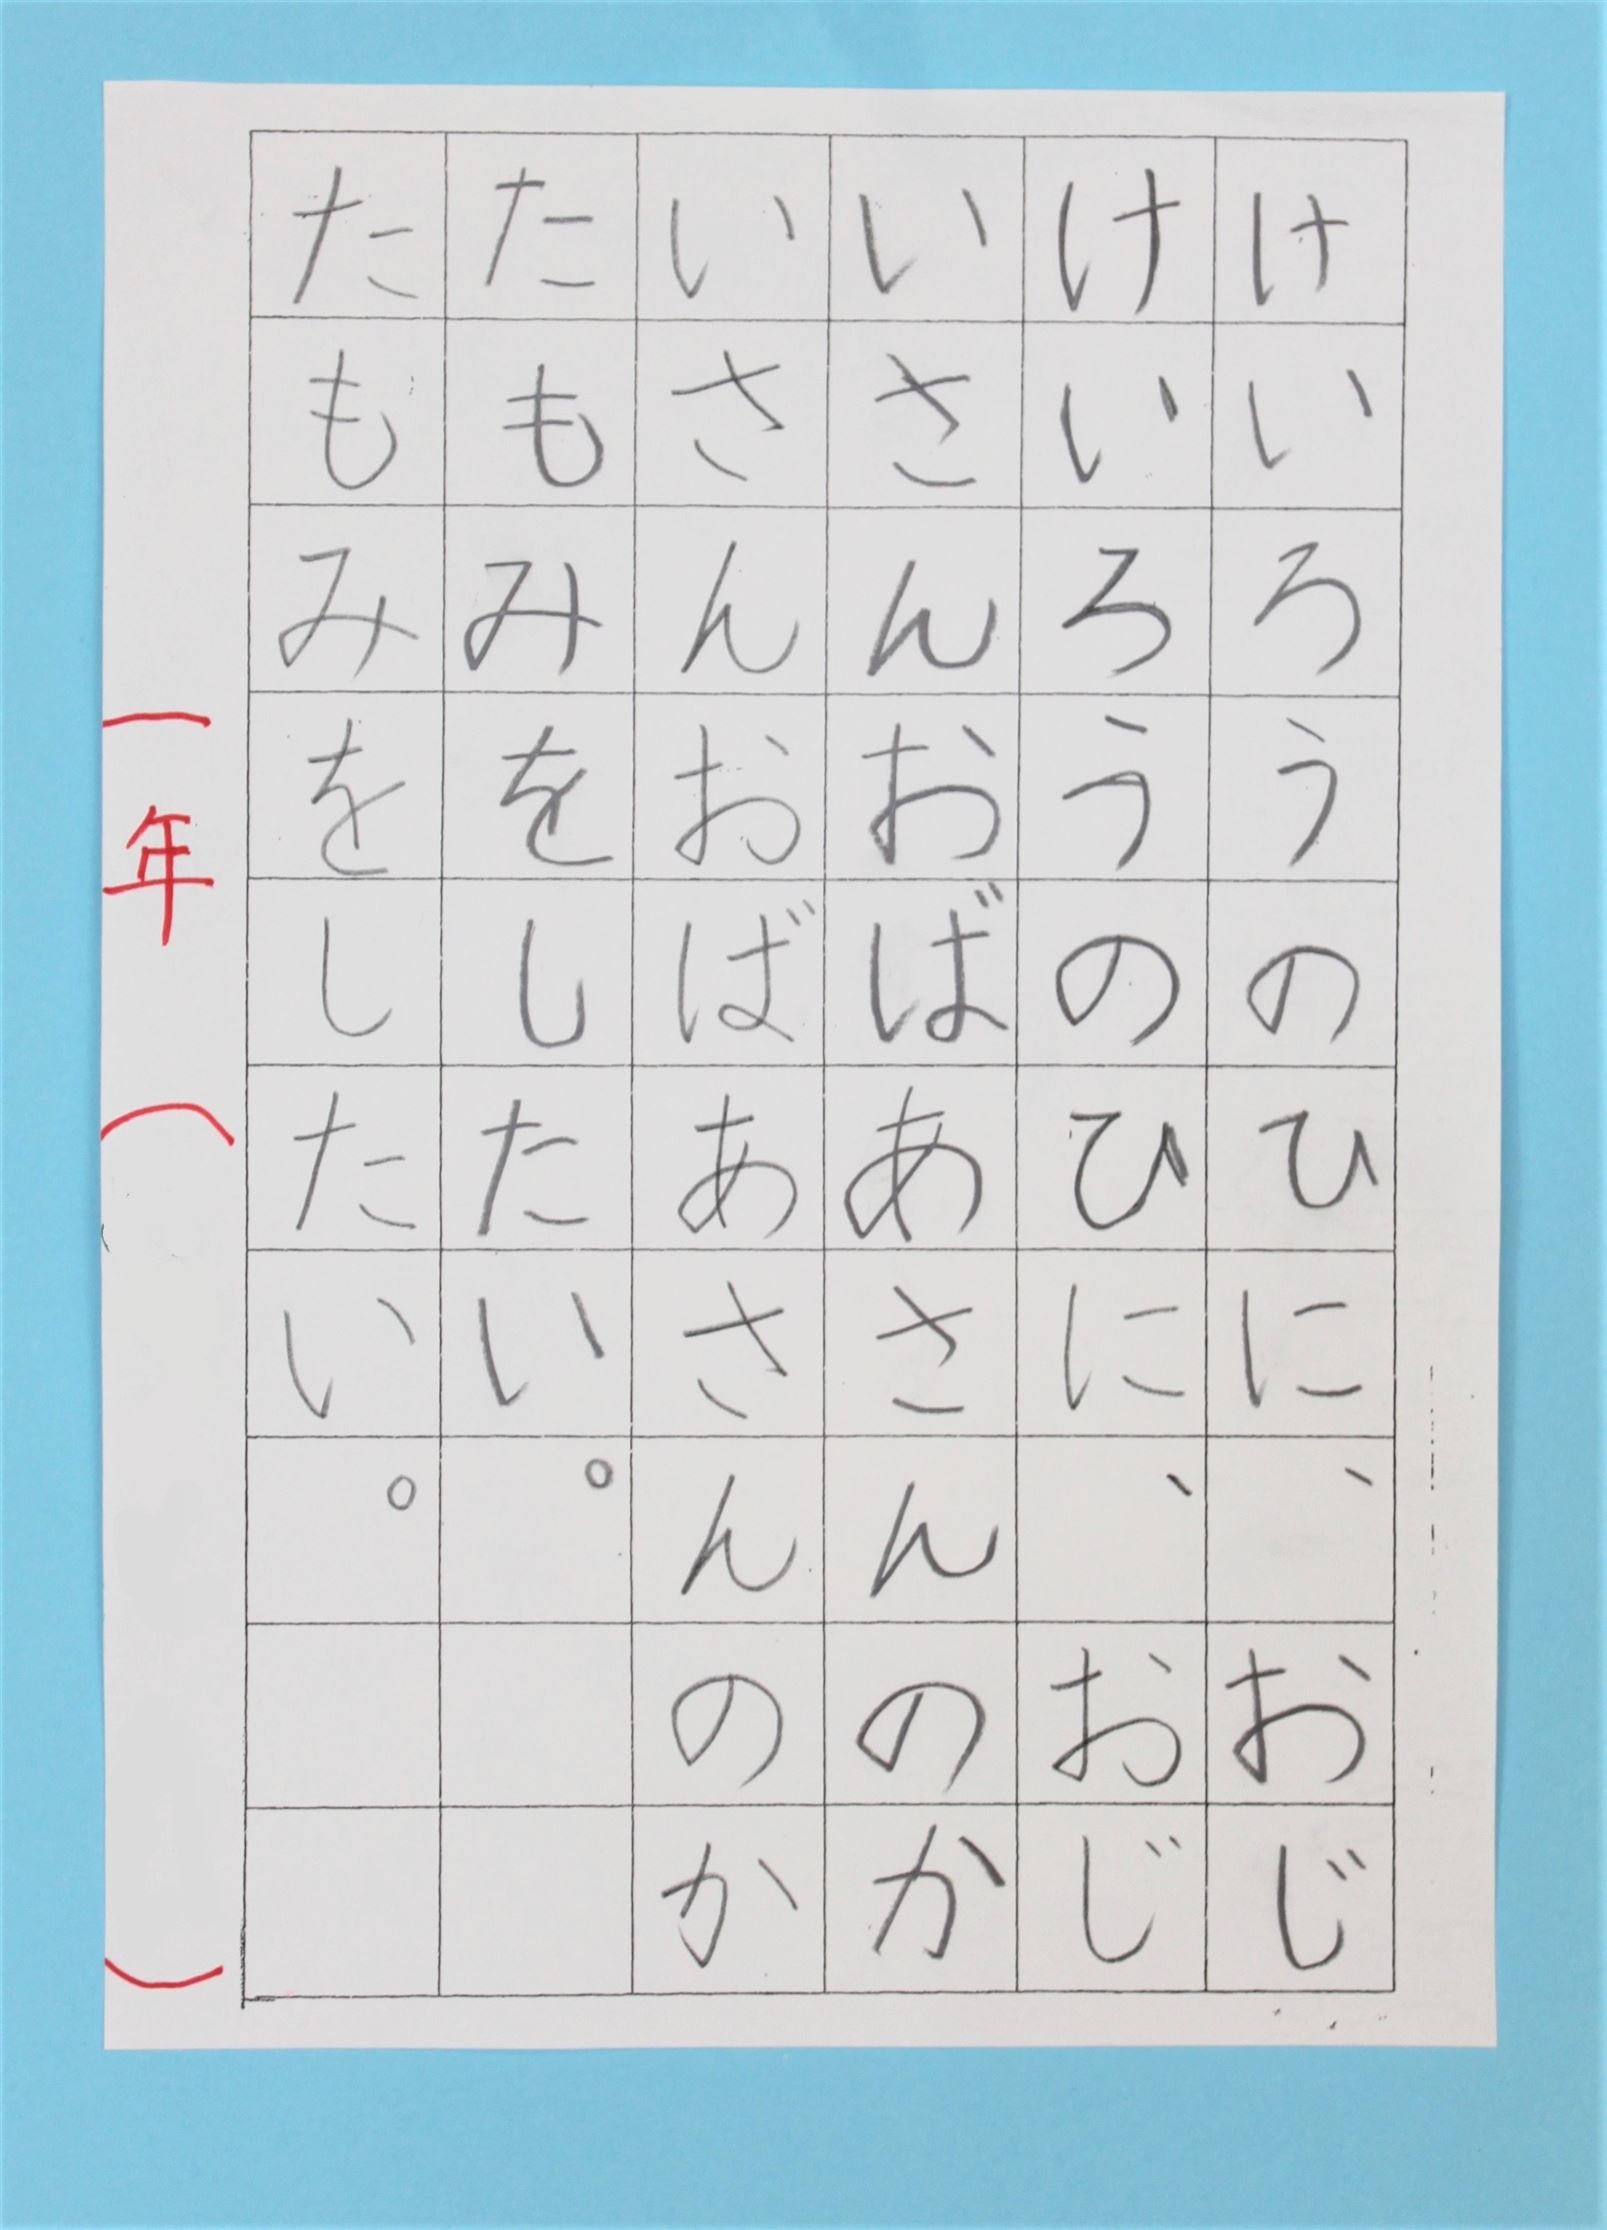 けいろうのひに、おじ
けいろうのひに、おじ
いさんおばあさんのか
いさんおばあさんのか
たもみをしたい。
たもみをしたい。
一年（　）